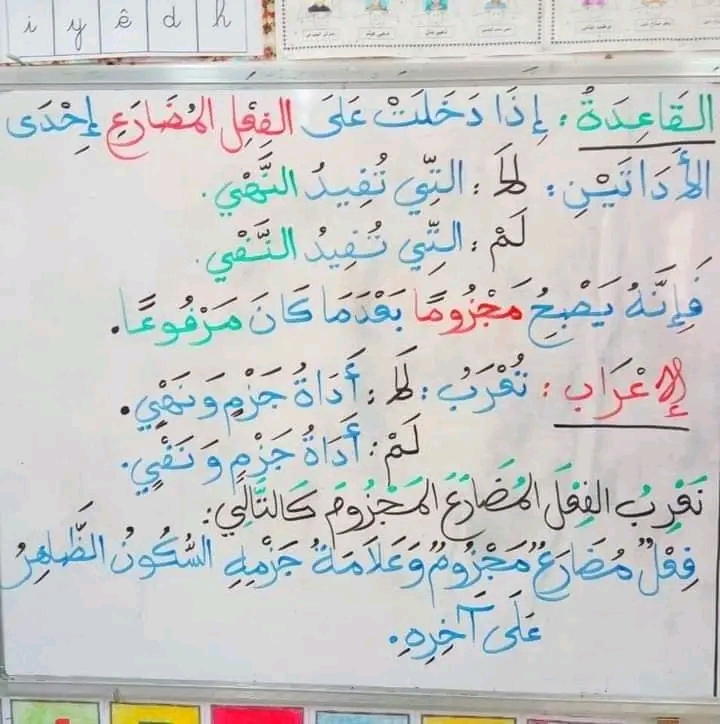 i y ê d h
القَاعِدَةُ : إِذَا دَخَلَتْ عَلَى الفِعْلِ المُضَارَعِ إِحْدَى
الأَدَاتَيْنِ : لَا : الَّتِي تُفِيدُ النَّهْيَ.
لَمْ : الَّتِي تُفِيدُ النَّفْيَ.
فَإِنَّهُ يَصْبِحُ مَجْزُومًا بَعْدَمَا كَانَ مَرْفُوعًا.
الإِعْرَاب : تُعْرَبُ : لَا : أَدَاةُ جَزْمٍ وَنَهْيٍ.
لَمْ : أَدَاةُ جَزْمٍ وَنَفْيٍ.
نَعْرِبُ الفِعْلَ المُضَارَعَ المَجْزُومَ كَالتَّالِي :
فِعْلٌ مُضَارَعٌ مَجْزُومٌ وَعَلَامَةُ جَزْمِهِ السُّكُونُ الظَّاهِرُ
عَلَى آخِرِهِ.